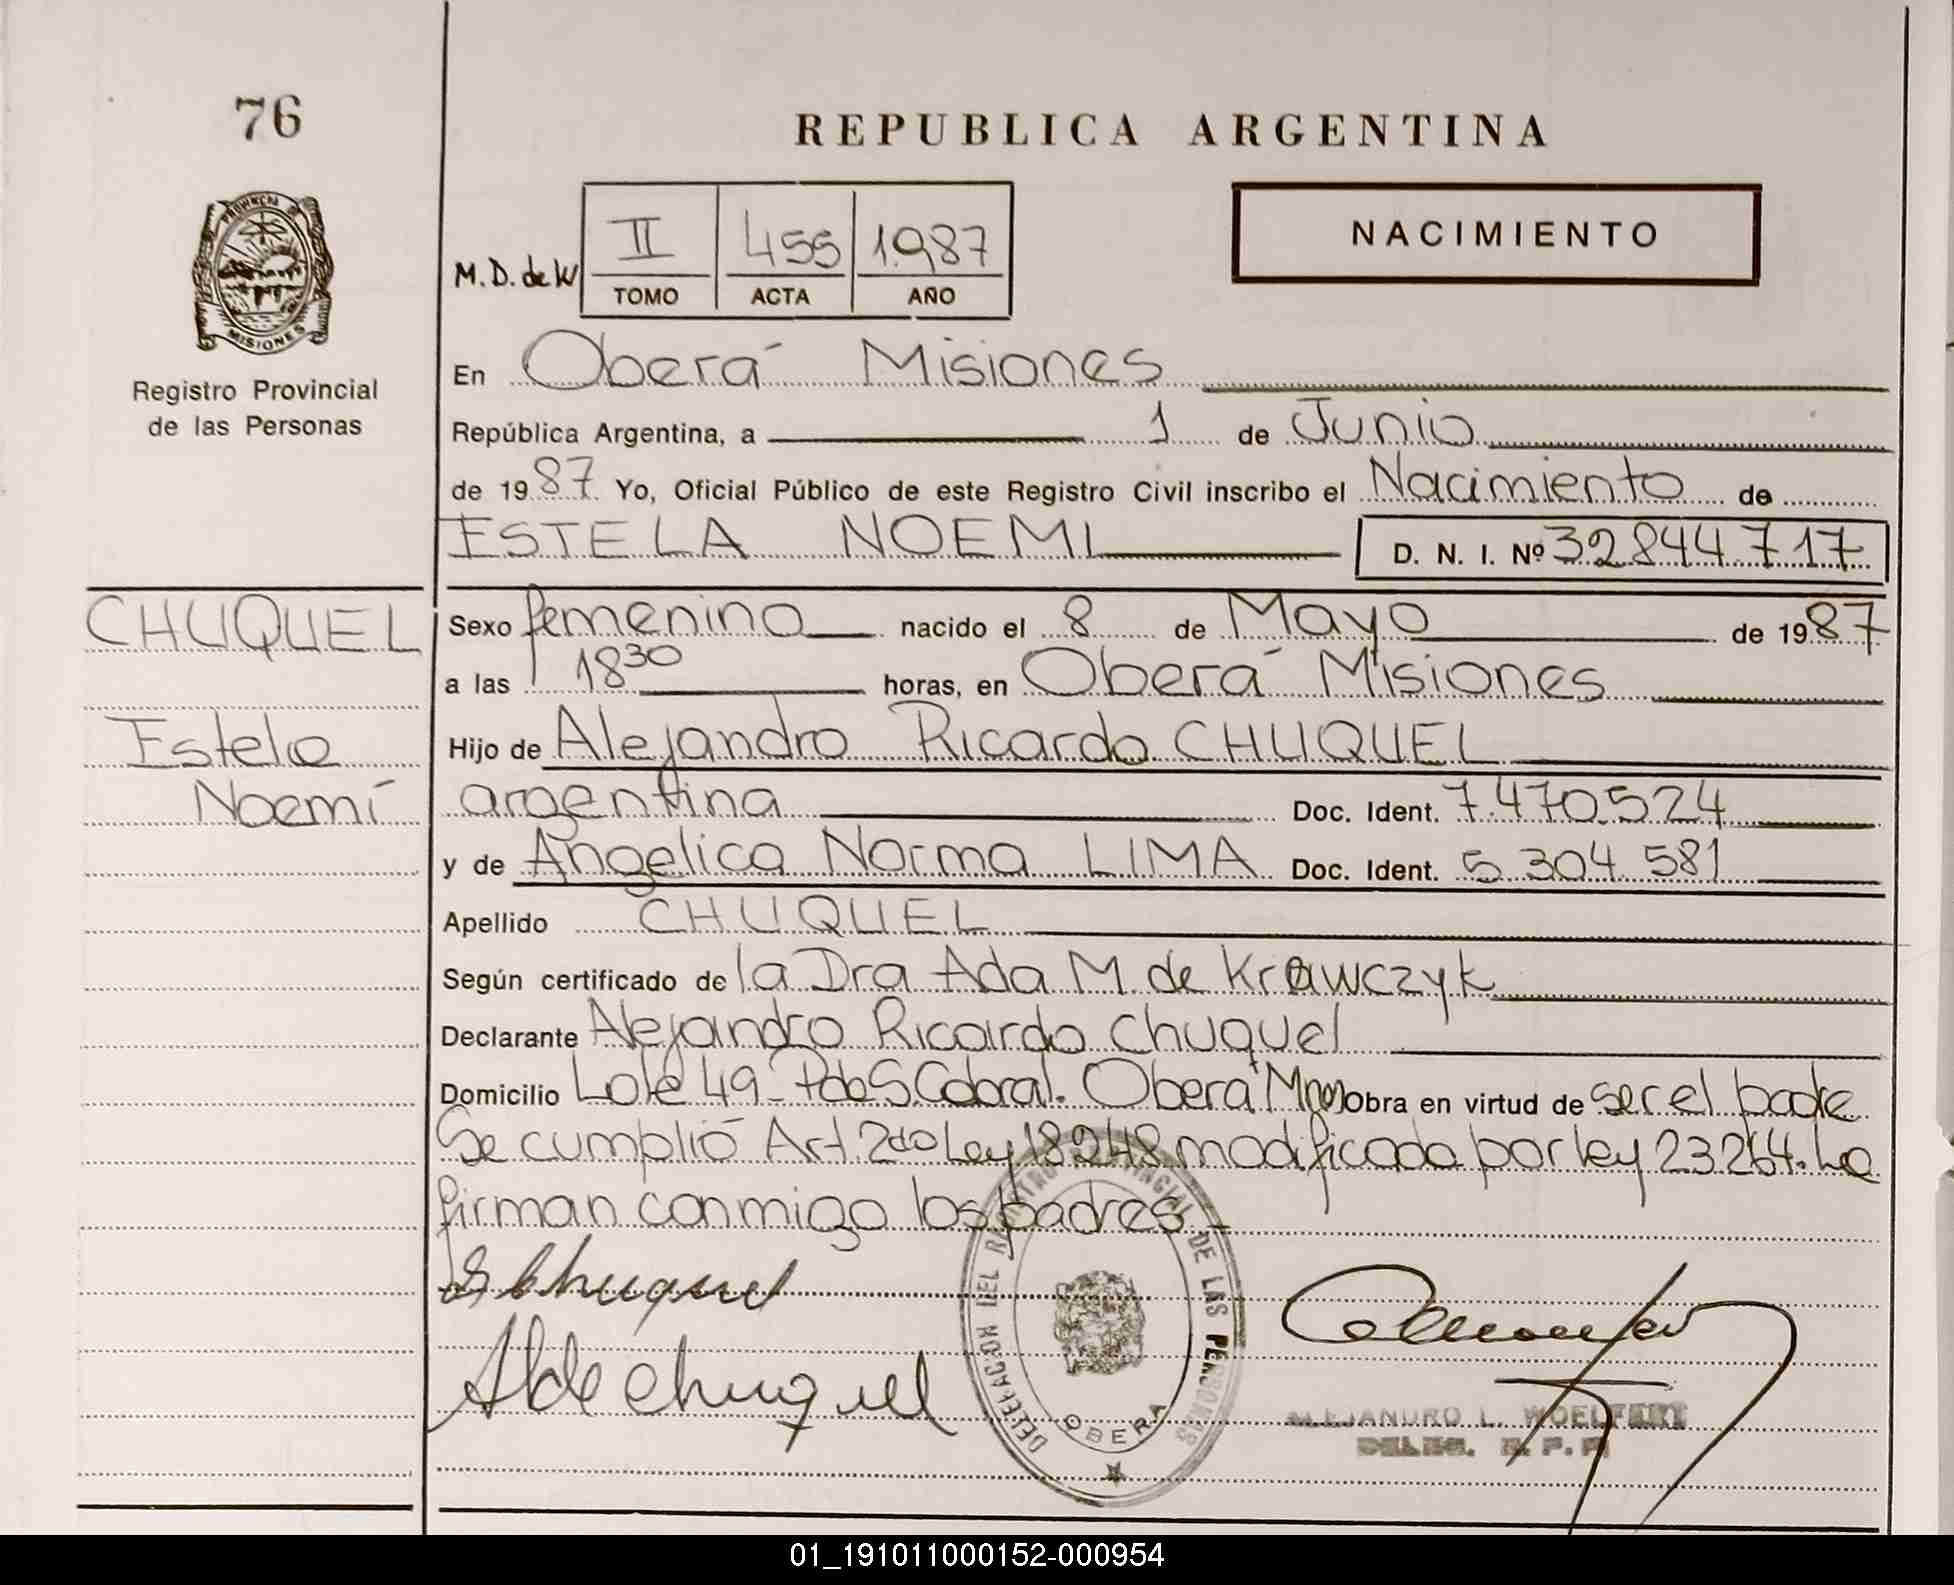 76
REPUBLICA ARGENTINA
PROVINCIA DE MISIONES
Registro Provincial
de las Personas
M.D. de W
II 455 1.987
TOMO ACTA AÑO
NACIMIENTO
En Oberá Misiones
República Argentina, a 1 de Junio
de 1987 Yo, Oficial Público de este Registro Civil inscribo el Nacimiento de
ESTELA NOEMI D. N. I. Nº 32.844.717
CHUQUEL
Estela
Noemí
Sexo femenino nacido el 8 de Mayo de 1987
a las 18 30 horas, en Oberá Misiones
Hijo de Alejandro Ricardo CHUQUEL
argentina Doc. Ident. 7.470.524
y de Angelica Norma LIMA Doc. Ident. 5.304.581
Apellido CHUQUEL
Según certificado de la Dra Ada M. de Krawczyk
Declarante Alejandro Ricardo Chuquel
Domicilio Lote 49- Pdo S. Cabral. Oberá Mnes Obra en virtud de ser el padre
Se cumplió Art. 2do Ley 18248 modificada por ley 23264. La
firman conmigo los padres -
Chuquel
A L de Chuquel
DELEGACION DEL REGISTRO PROVINCIAL DE LAS PERSONAS
OBERA
ALEJANDRO L. WOELFERT
DELEG. R. P. P.
01_191011000152-000954